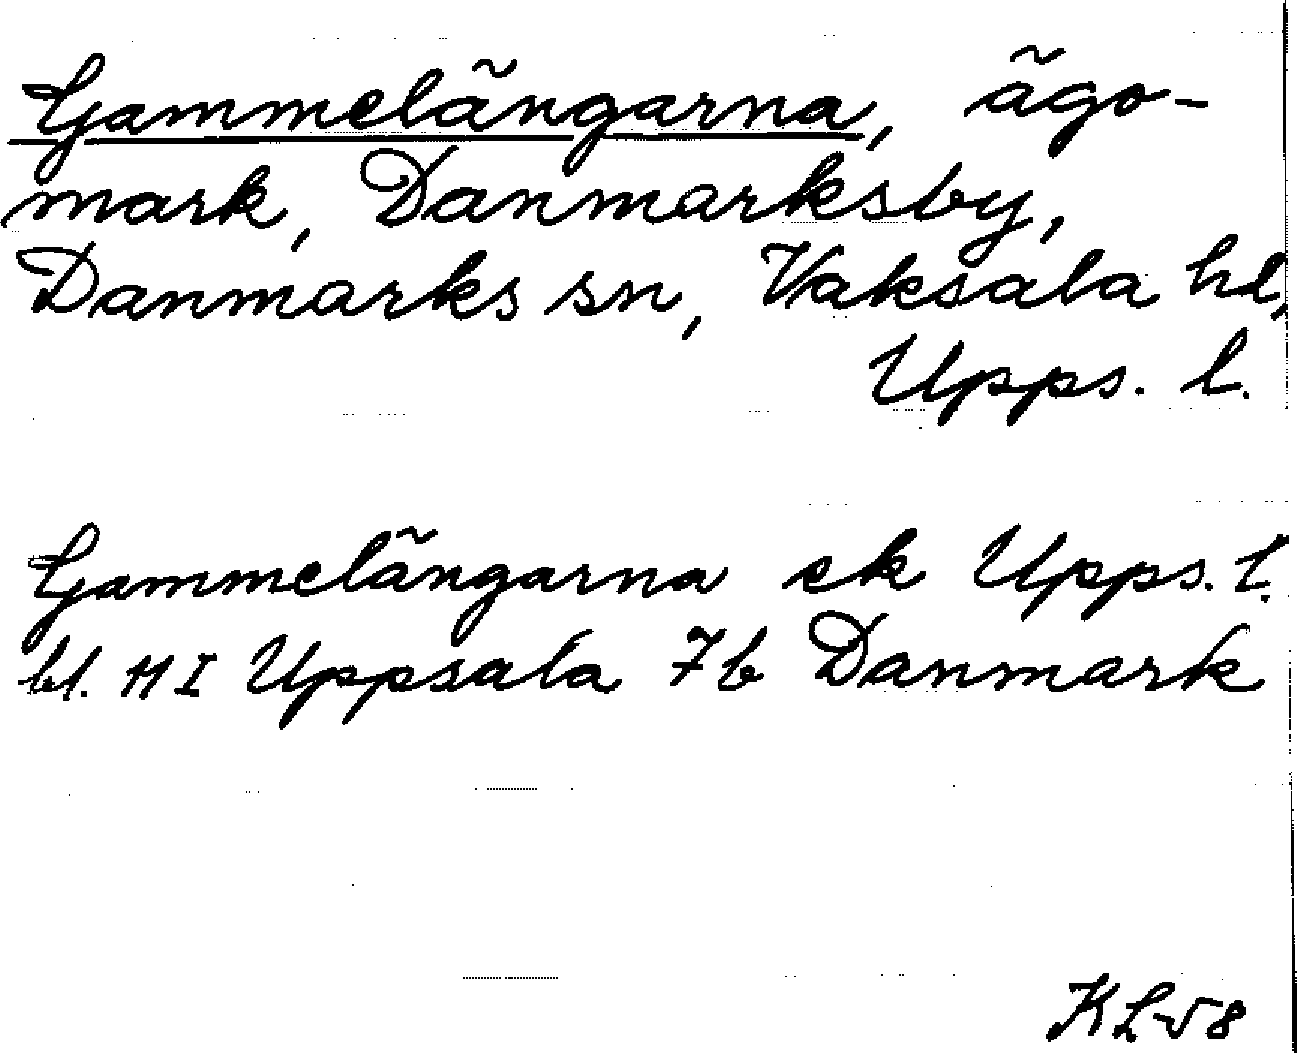 Gammelängarna, ägo-
mark, Danmarksby,
Danmarks sn, Vaksala hd,
Upps. l.
Gammelängarna ek Upps. l.
bl. H I Uppsala 7b Danmark
KL-58